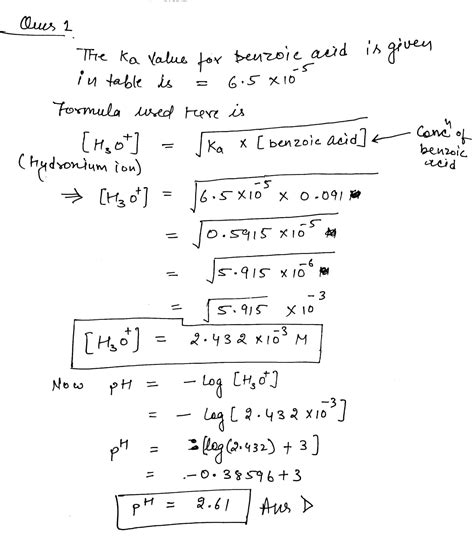 Ques 1
The Ka value for benzoic acid is given
in table is = 6.5 × 10⁻⁵
Formula used Here is
[H₃O⁺] = √Ka × [benzoic acid] ← Concⁿ of benzoic acid
(Hydronium ion)
⇒ [H₃O⁺] = √6.5×10⁻⁵ × 0.091
= √0.5915 × 10⁻⁵
= √5.915 × 10⁻⁶
= √5.915 × 10⁻³
[H₃O⁺] = 2.432 × 10⁻³ M
Now pH = - Log [H₃O⁺]
= - Log [2.432 × 10⁻³]
pH = [log(2.432) + 3]
= -0.38596 + 3
pH = 2.61 Ans D